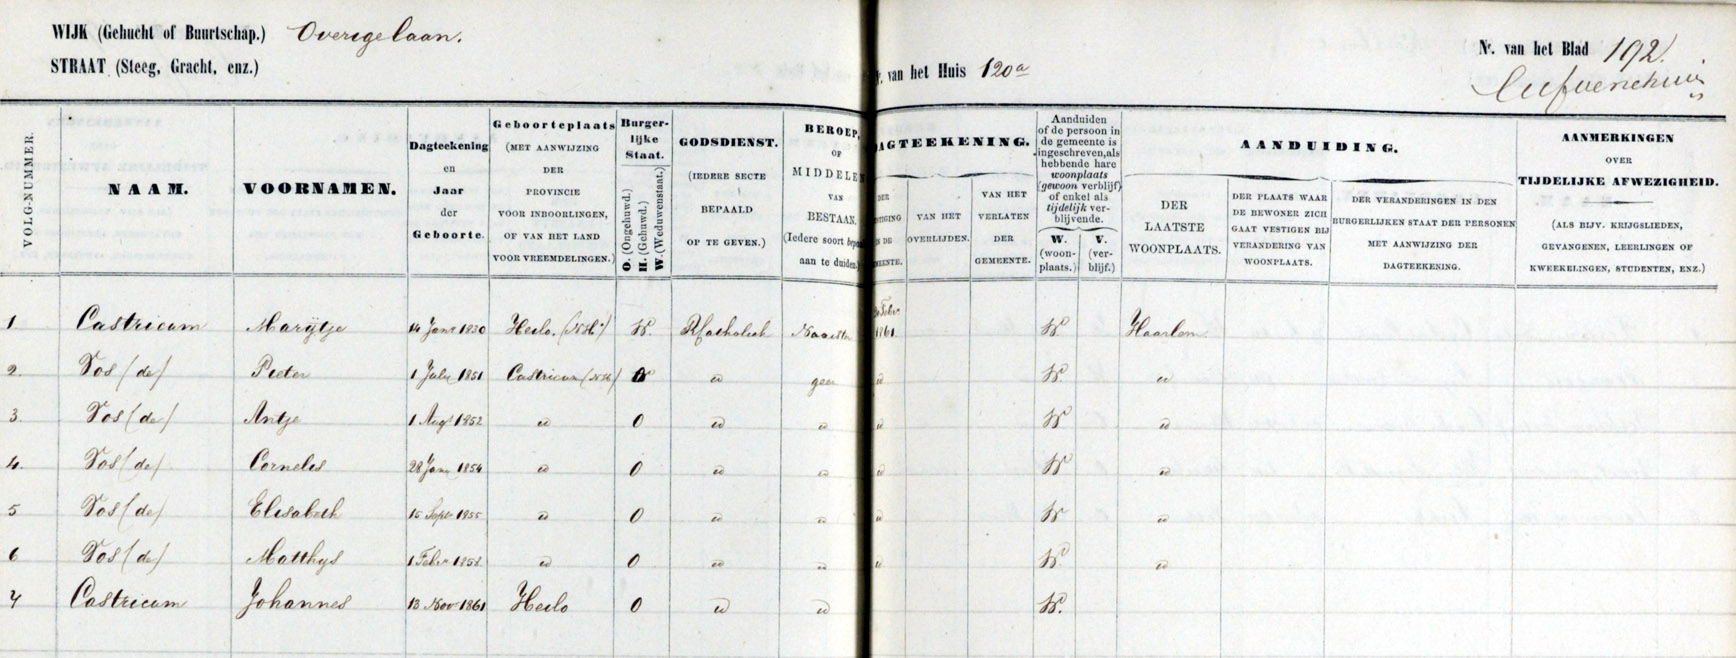 WIJK (Gehucht of Buurtschap.) Overige laan.
STRAAT (Steeg, Gracht, enz.)
Nr. van het Huis 120a
Nr. van het Blad 192.
VOLG-NUMMER.
NAAM.
VOORNAMEN.
Dagteekening
en
Jaar
der
Geboorte.
Geboorteplaats
(MET AANWIJZING
DER
PROVINCIE
VOOR INBOORLINGEN,
OF VAN HET LAND
VOOR VREEMDELINGEN.)
Burger-
lijke
Staat.
O. (Ongehuwd.)
H. (Gehuwd.)
W. (Weduwenstaat.)
GODSDIENST.
(IEDERE SECTE
BEPAALD
OP TE GEVEN.)
BEROEP,
OF
MIDDELEN
VAN
BESTAAN.
(Iedere soort bepaal
aan te duiden.)
DAGTEEKENING.
DER
VESTIGING
IN DE
GEMEENTE.
VAN HET
OVERLIJDEN.
VAN HET
VERLATEN
DER
GEMEENTE.
Aanduiden
of de persoon in
de gemeente is
ingeschreven, als
hebbende hare
woonplaats
(gewoon verblijf)
of enkel als
tijdelijk ver-
blijvende.
W.
(woon-
plaats.)
V.
(ver-
blijf.)
AANDUIDING.
DER
LAATSTE
WOONPLAATS.
DER PLAATS WAAR
DE BEWONER ZICH
GAAT VESTIGEN BIJ
VERANDERING VAN
WOONPLAATS.
DER VERANDERINGEN IN DEN
BURGERLIJKEN STAAT DER PERSONEN
MET AANWIJZING DER
DAGTEEKENING.
AANMERKINGEN
OVER
TIJDELIJKE AFWEZIGHEID.
(ALS BIJV. KRIJGSLIEDEN,
GEVANGENEN, LEERLINGEN OF
KWEEKELINGEN, STUDENTEN, ENZ.)
1. Castricum Marijtje 14 Janr 1830 Heilo. (N.H.) W. R Catholiek Naaister Febr. 1861. W Haarlem
2. Vos (de) Pieter 1 July 1851 Castricum (N.H.) " geen " W. "
3. Vos (de) Antje 1 Augt 1852 " O " " " W "
4. Vos (de) Cornelis 28 Janr 1854 " O " " " W "
5 Vos (de) Elisabeth 15 Septr 1855 " O " " " W "
6 Vos (de) Matthys 1 Febr 1858 " O " " " W. "
7 Castricum Johannes 13 Novr 1861 Heilo O " " W.